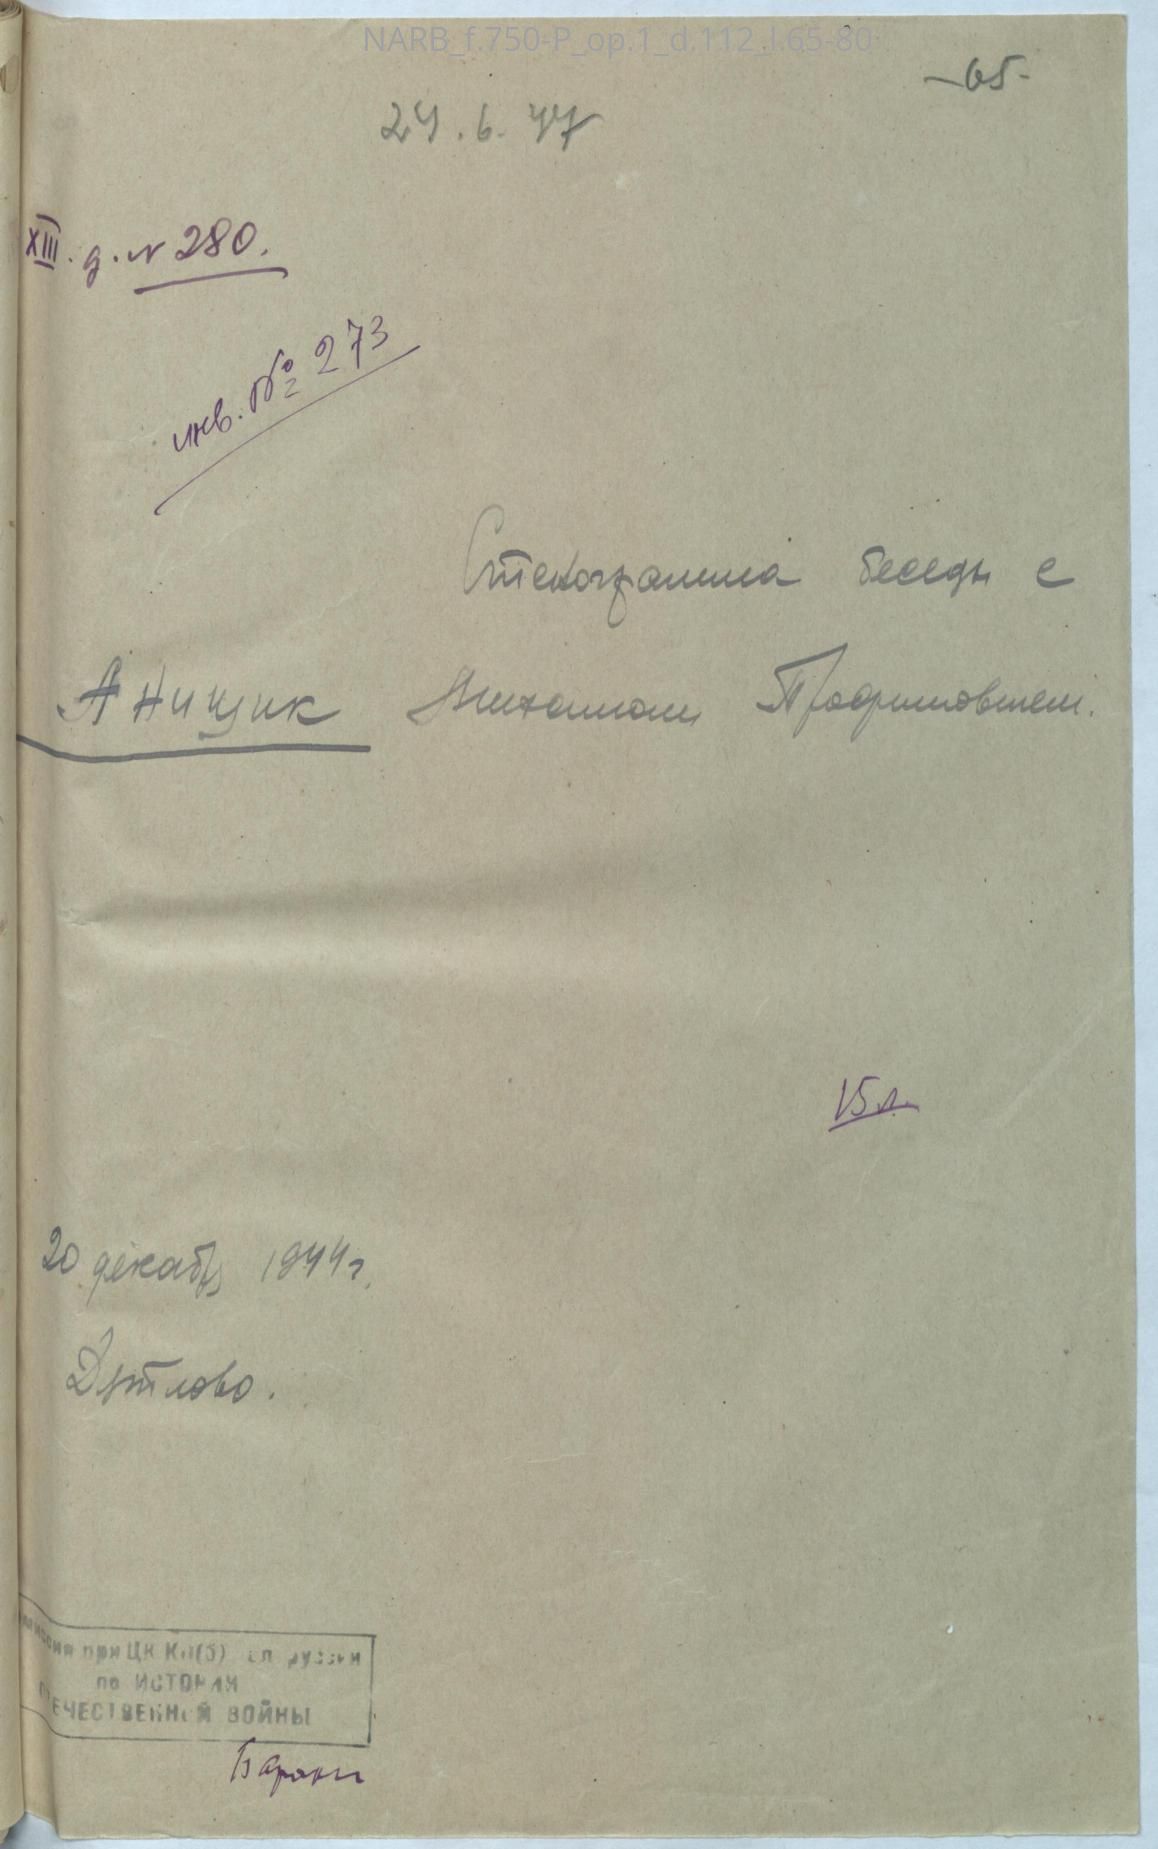 NARB_f.750-P_op.1_d.112_l.65-80
-65-
24.6.47
XIII. д. N 280.
инв. № 273
Стенограмма беседы с
Анищик Михаилом Трофимовичем.
15 л.
20 декабря 1944 г.
Дятлово.
при ЦК КП(б)
по ИСТОРИИ
ОТЕЧЕСТВЕННОЙ ВОЙНЫ